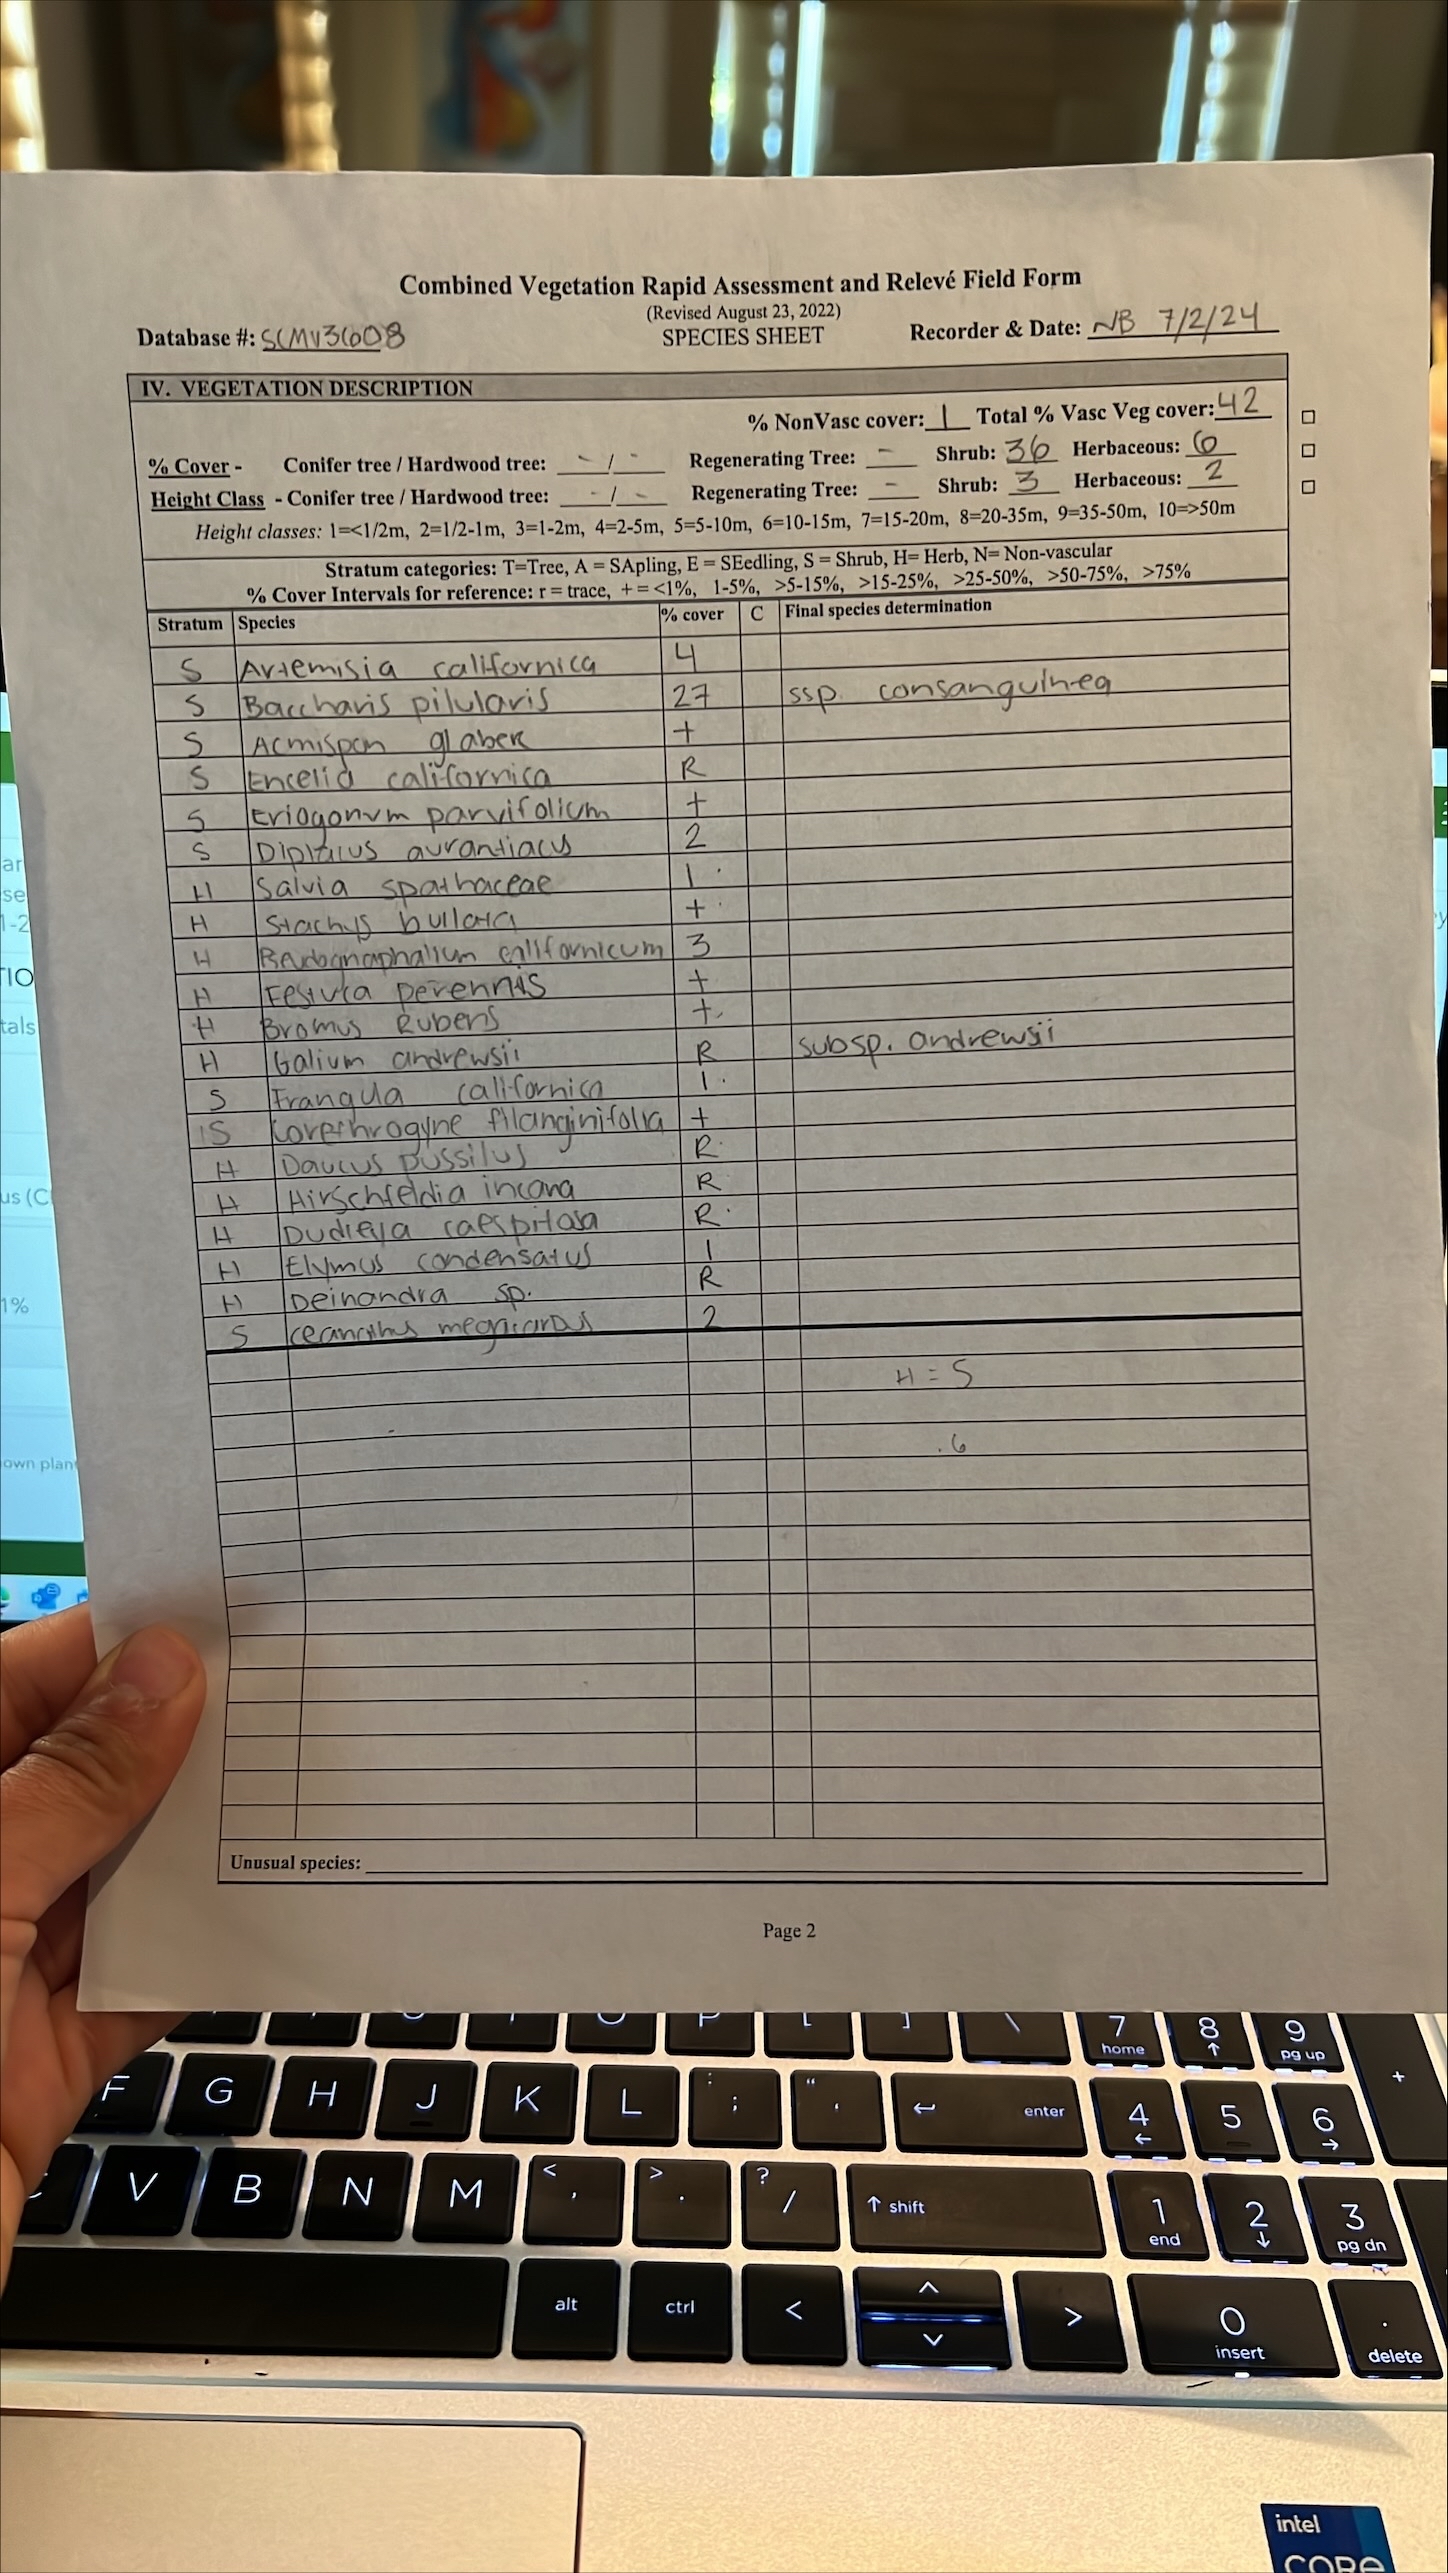 Combined Vegetation Rapid Assessment and Relevé Field Form
(Revised August 23, 2022)
Database #: SCMV3608 SPECIES SHEET Recorder & Date: NB 7/2/24
IV. VEGETATION DESCRIPTION
% NonVasc cover: 1 Total % Vasc Veg cover: 42
% Cover - Conifer tree / Hardwood tree: - / - Regenerating Tree: - Shrub: 36 Herbaceous: 6
Height Class - Conifer tree / Hardwood tree: - / - Regenerating Tree: - Shrub: 3 Herbaceous: 2
Height classes: 1=<1/2m, 2=1/2-1m, 3=1-2m, 4=2-5m, 5=5-10m, 6=10-15m, 7=15-20m, 8=20-35m, 9=35-50m, 10=>50m
Stratum categories: T=Tree, A = SApling, E = SEedling, S = Shrub, H= Herb, N= Non-vascular
% Cover Intervals for reference: r = trace, + = <1%, 1-5%, >5-15%, >15-25%, >25-50%, >50-75%, >75%
Stratum Species % cover C Final species determination
S Artemisia californica 4
S Baccharis pilularis 27 ssp. consanguinea
S Acmispon glaber +
S Encelia californica R
S Eriogonum parvifolium +
S Diplacus aurantiacus 2
H Salvia spathaceae 1
H Stachys bullata +
H Pseudognaphalium californicum 3
H Festuca perennis +
H Bromus Rubens +
H Galium andrewsii R subsp. andrewsii
S Frangula californica 1
S Corethrogyne filanginifolia +
H Daucus pussilus R
H Hirschfeldia incana R
H Dudleya caespitosa R
H Elymus condensatus 1
H Deinandra sp. R
S Ceanothus megacarpus 2
H = 5
.6
Unusual species:
Page 2
7 home
8
9 pg up
+
F G H J K L : ; " ' enter 4 5 6
V B N M < , > . ? / shift 1 end 2 3 pg dn
alt ctrl < > 0 insert . delete
intel
CORE
own plan
1%
us (C
tals
TIO
1-2
se
ar